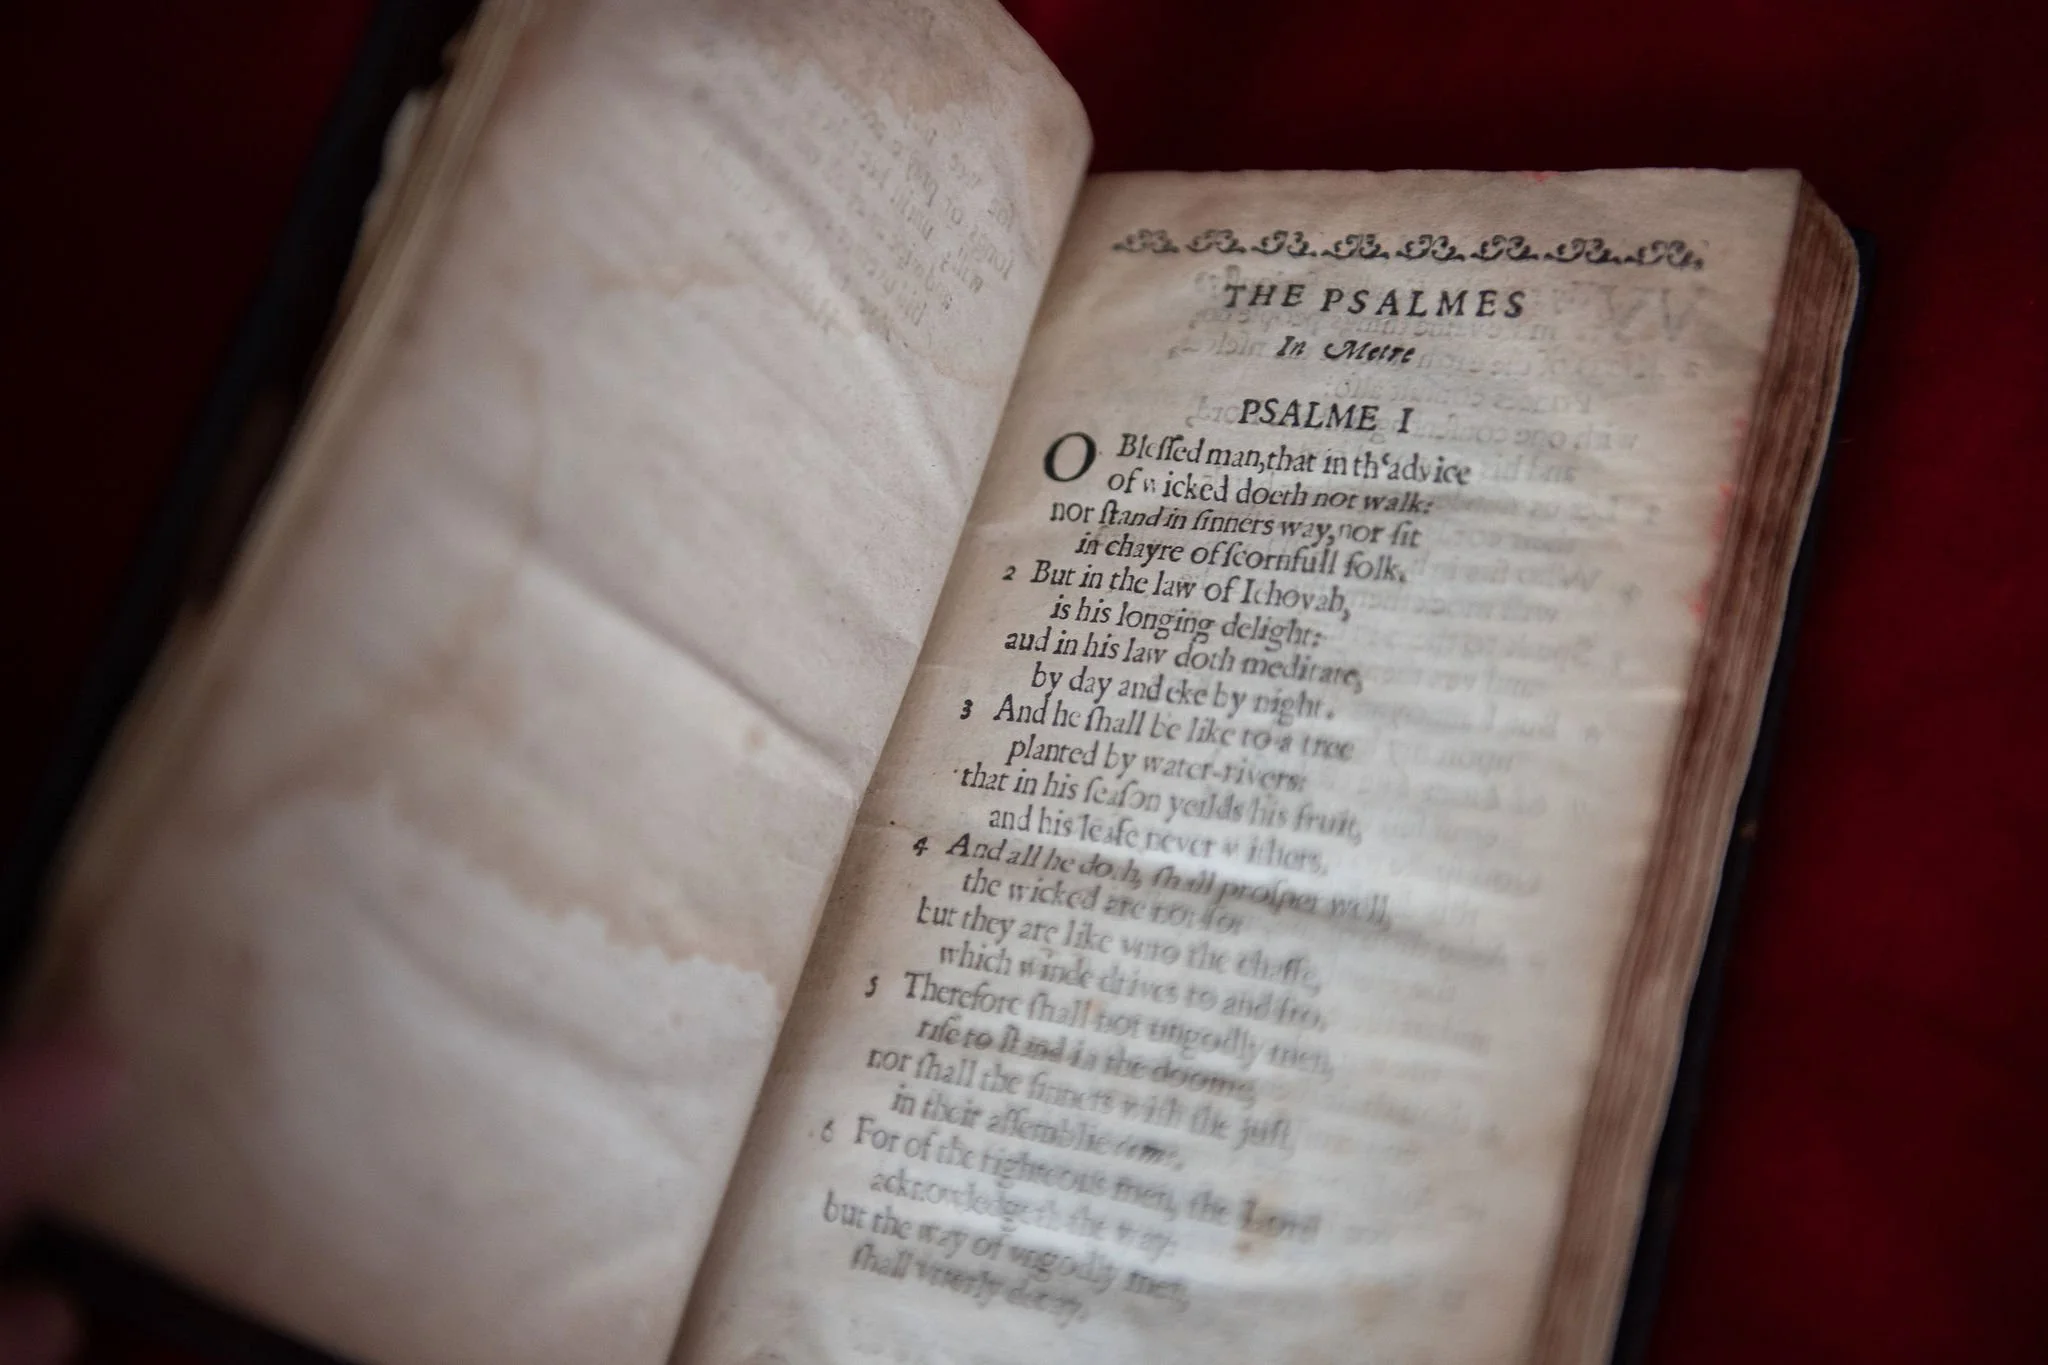 THE PSALMES
In Metre
PSALME I
O Bleſſed man, that in th‘advice
of wicked doeth not walk:
nor ſtand in ſinners way, nor ſit
in chayre of ſcornfull folk.
2 But in the law of Iehovah,
is his longing delight:
aud in his law doth meditate,
by day and eke by night.
3 And he ſhall be like to a tree
planted by water-rivers:
that in his ſeaſon yeilds his fruit,
and his leafe never withers.
4 And all he doth, ſhall proſper well,
the wicked are not ſo:
but they are like vnto the chaffe,
which winde drives to and fro.
5 Therefore ſhall not ungodly men,
riſe to ſtand in the doome,
nor ſhall the ſinners with the juſt,
in their aſſemblie come.
6 For of the righteous men, the Lord
acknowledgeth the way:
but the way of vngodly men,
ſhall vtterly decay.